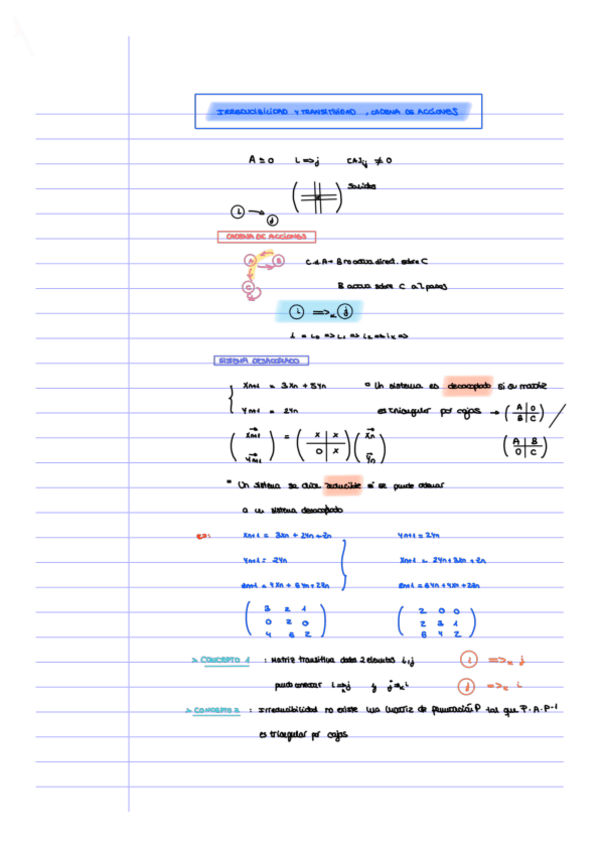 IRREDUCIBILIDAD Y TRANSITIVIDAD, CADENA DE ACCIONES
A ≥ 0 i => j (A)ij ≠ 0
salidas
i → j
CADENA DE ACCIONES
A B B no actua direct. sobre C
C B actua sobre C a 2 pasos
i =>k j
i = i0 => i1 => i2 => ik =>
SISTEMA DESACOPLADO
xn+1 = 3xn + 5yn * Un sistema es desacoplado si su matriz
yn+1 = 2yn es triangular por cajas → ( A 0 / B C ) /
( xn+1 / yn+1 ) = ( x x / 0 x ) ( xn / yn ) ( A B / 0 C )
* Un sistema se dice reducible si se puede ordenar
a un sistema desacoplado
ex: xn+1 = 3xn + 2yn + zn yn+1 = 2yn
yn+1 = 2yn xn+1 = 2yn + 3xn + zn
zn+1 = 4xn + 6yn + 2zn zn+1 = 6yn + 4xn + 2zn
3 2 1 2 0 0
0 2 0 2 3 1
4 6 2 6 4 2
> CONCEPTO 1 : Matriz transitiva dados 2 elementos i, j i =>k j
puedo conectar i =>k j y j =>k i j =>k i
> CONCEPTO 2 : Irreducibilidad no existe una matriz de permutación P tal que P·A·P-1
es triangular por cajas